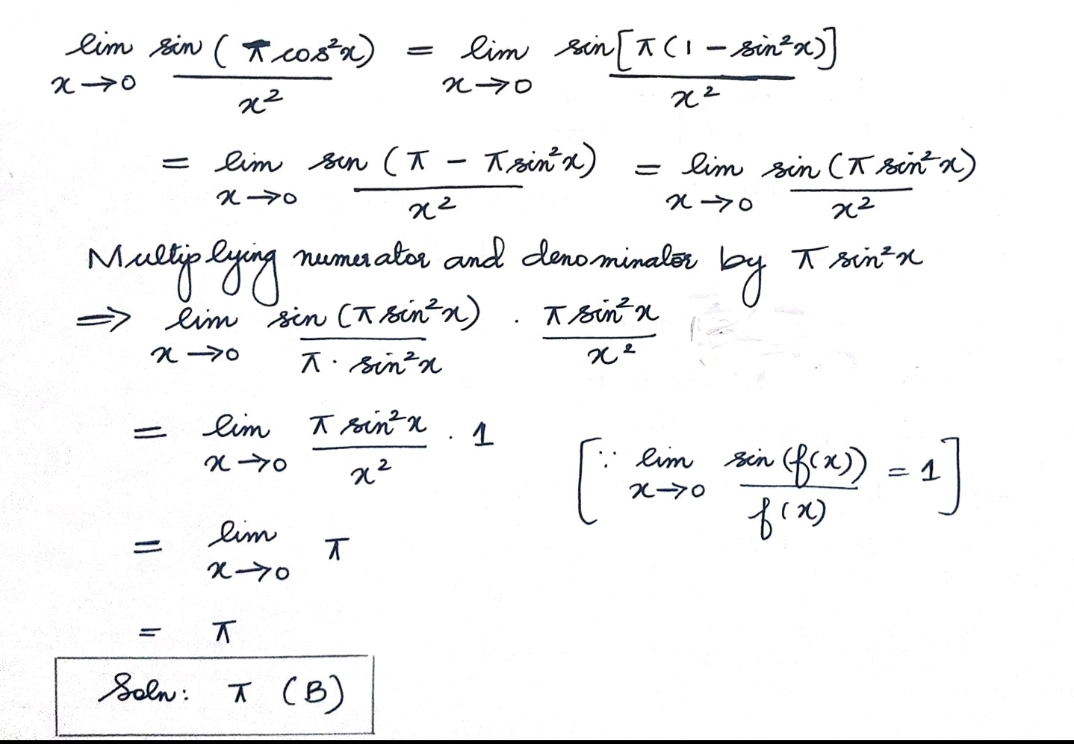 lim x→0 sin(π cos²x) / x² = lim x→0 sin[π(1 − sin²x)] / x²
= lim x→0 sin(π − π sin²x) / x² = lim x→0 sin(π sin²x) / x²
Multiplying numerator and denominator by π sin²x
⇒ lim x→0 sin(π sin²x) / π · sin²x · π sin²x / x²
= lim x→0 π sin²x / x² · 1 [∵ lim x→0 sin(f(x)) / f(x) = 1]
= lim x→0 π
= π
Soln: π (B)